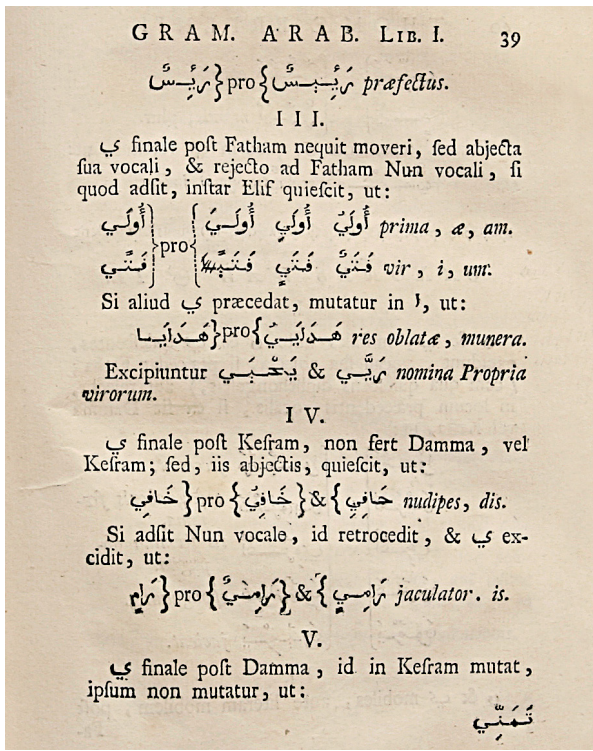 GRAM. ARAB. LIB. I. 39
رَيِّسٌ } pro { رَئِيسٌ præfectus.
III.
ي finale poſt Fatham nequit moveri, ſed abjecta
ſua vocali, & rejecto ad Fatham Nun vocali, ſi
quod adſit, inſtar Elif quieſcit, ut:
أُولَي } pro { أُولَيُ أُولَيِ أُولَيَ prima, æ, am.
فَتًي } pro { فَتَيٌ فَتَيٍ vir, i, um.
Si aliud ي præcedat, mutatur in ا, ut:
هَدَايَا } pro { هَدَايَيُ res oblatæ, munera.
Excipiuntur يَحْيَي & رَيَّي nomina Propria
virorum.
IV.
ي finale poſt Keſram, non fert Damma, vel
Keſram; ſed, iis abjectis, quieſcit, ut:
حَافِي } pro { حَافِيُ } & { حَافِيِ nudipes, dis.
Si adſit Nun vocale, id retrocedit, & ي ex-
cidit, ut:
رَامٍ } pro { رَامِيٌ } & { رَامِيٍ jaculator. is.
V.
ي finale poſt Damma, id in Keſram mutat,
ipſum non mutatur, ut:
تَمَنِّي